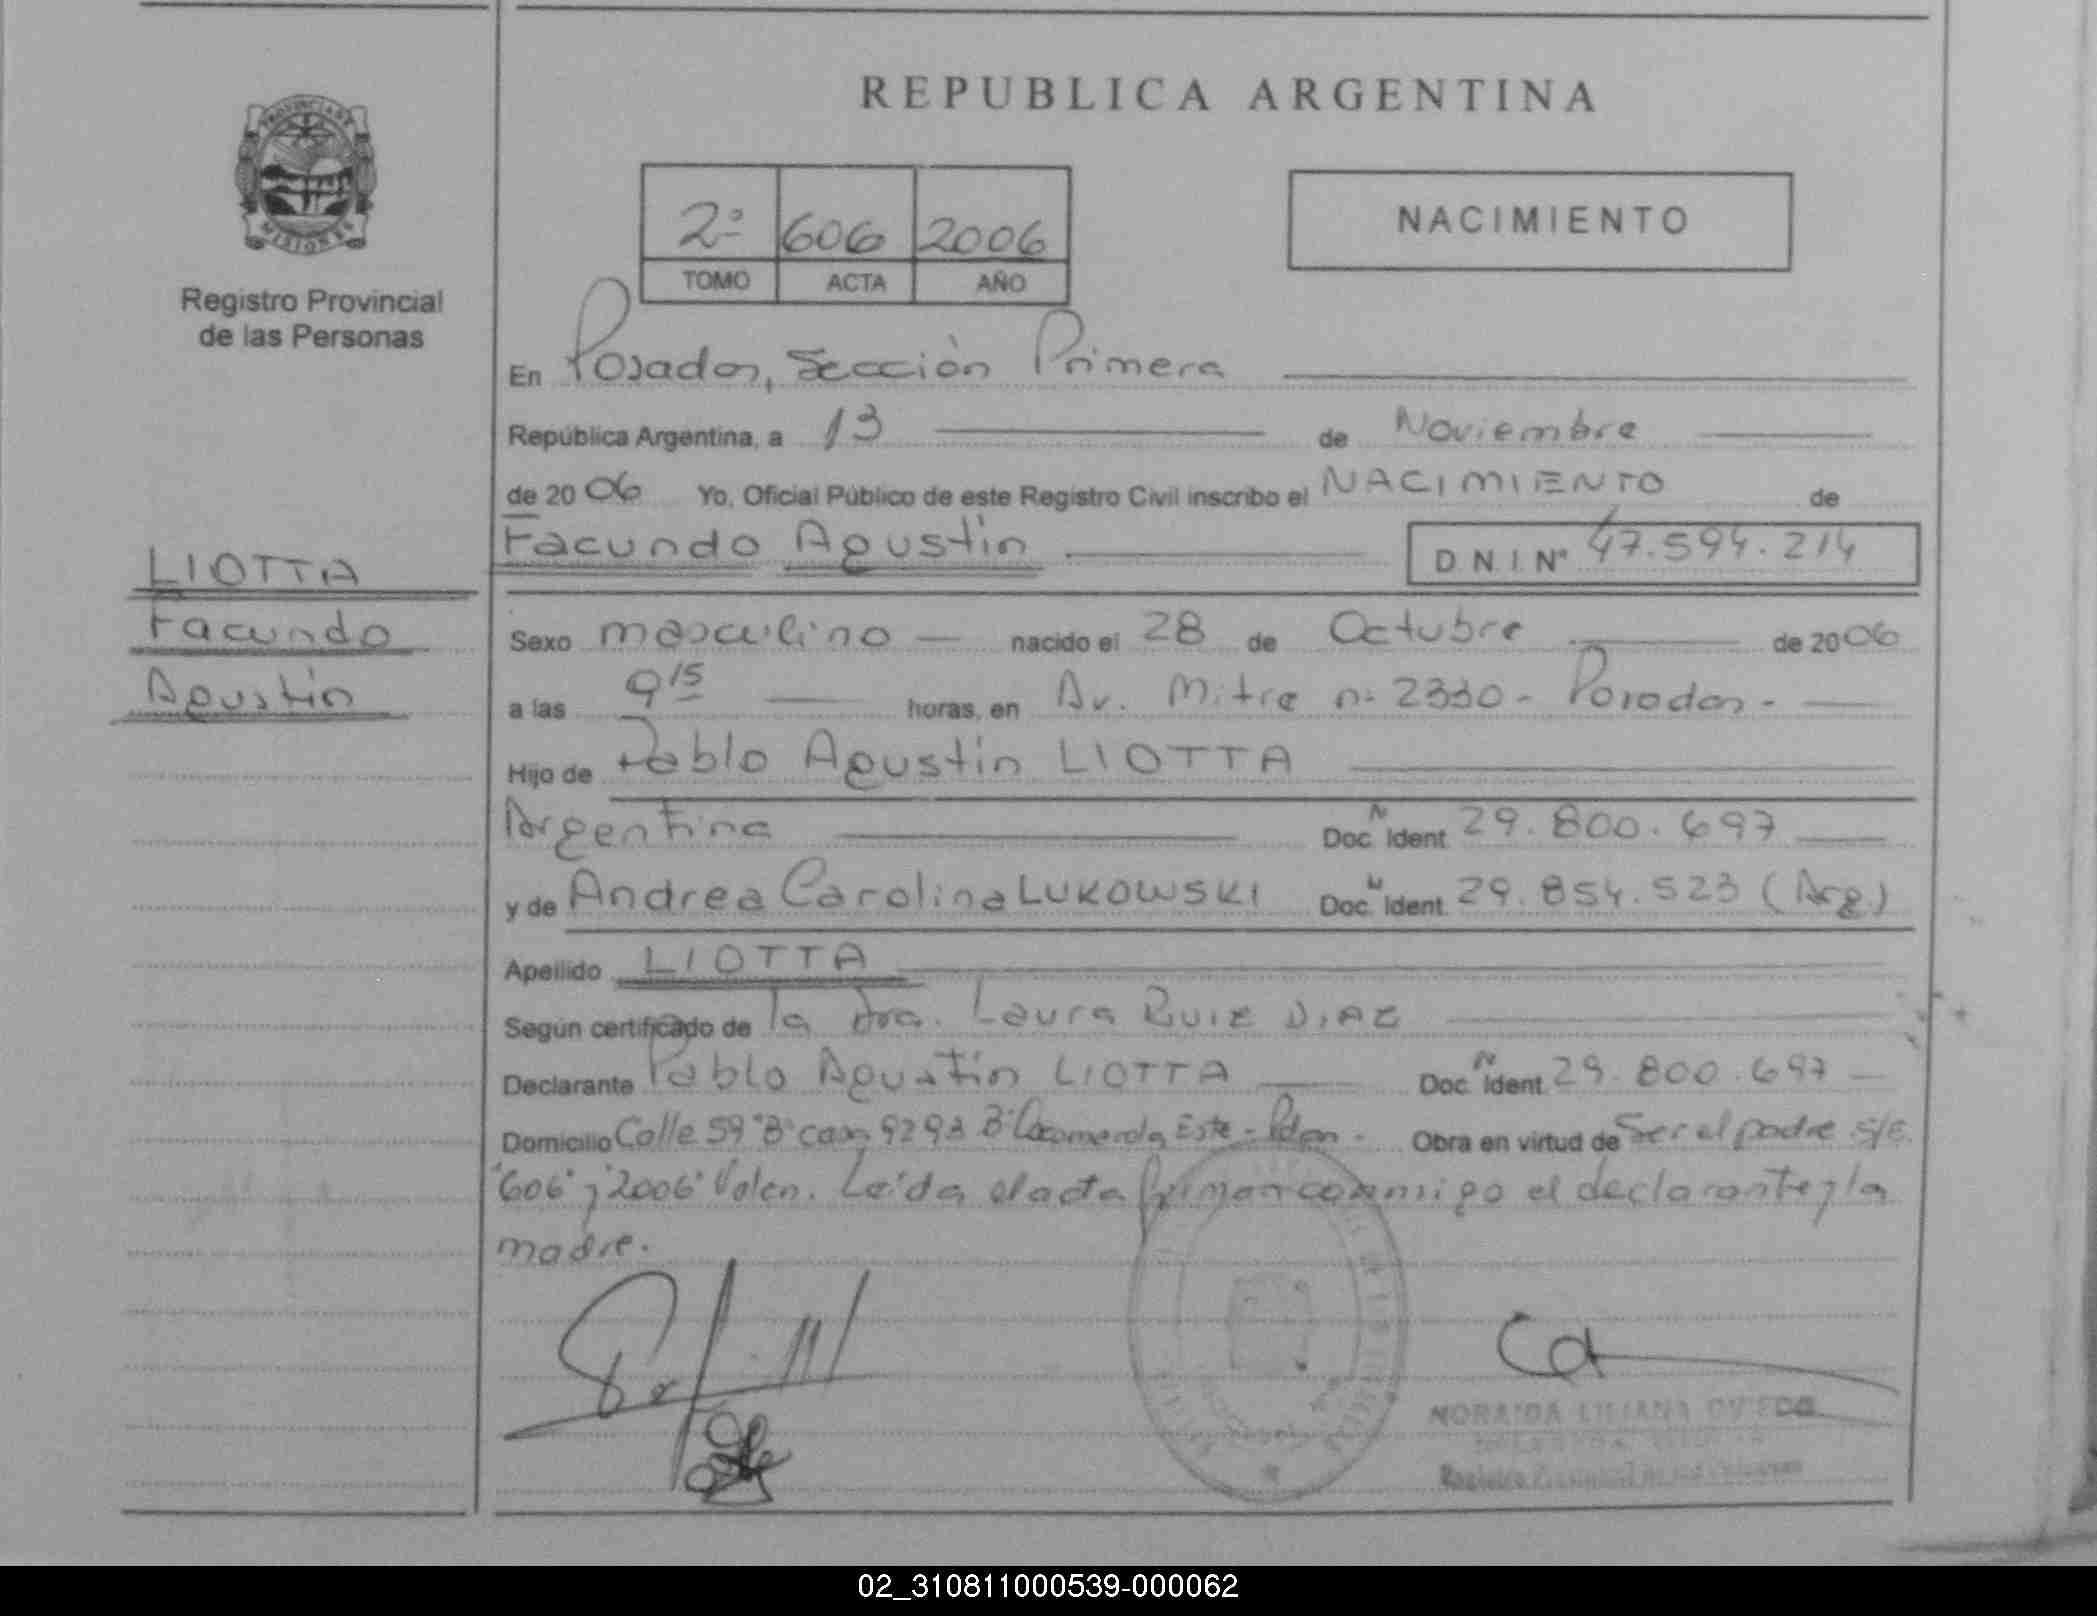 PROVINCIA DE
MISIONES
Registro Provincial
de las Personas
LIOTTA
Facundo
Agustín
REPUBLICA ARGENTINA
2º 606 2006
TOMO ACTA AÑO
NACIMIENTO
En Posadas, Sección Primera
República Argentina, a 13 de Noviembre
de 2006 Yo, Oficial Público de este Registro Civil inscribo el NACIMIENTO de
Facundo Agustín D.N.I. Nº 47.594.214
Sexo masculino nacido el 28 de Octubre de 2006
a las 9 15 horas, en Av. Mitre nº 2330 - Posadas -
Hijo de Pablo Agustín LIOTTA
Argentina Doc. N Ident. 29.800.697
y de Andrea Carolina LUKOWSKI Doc. N Ident. 29.854.523 (Arg.)
Apellido LIOTTA
Según certificado de la Dra. Laura RUIZ DIAZ
Declarante Pablo Agustín LIOTTA Doc. N Ident. 29.800.697
Domicilio Calle 59 "B" casa 9293 Bº Itaembé Este - Pdas. Obra en virtud de Ser el padre s/e.
"606" y "2006" Valen. Leída el acta firman conmigo el declarante y la
madre.
NORAIDA LILIANA OVIEDO
02_310811000539-000062